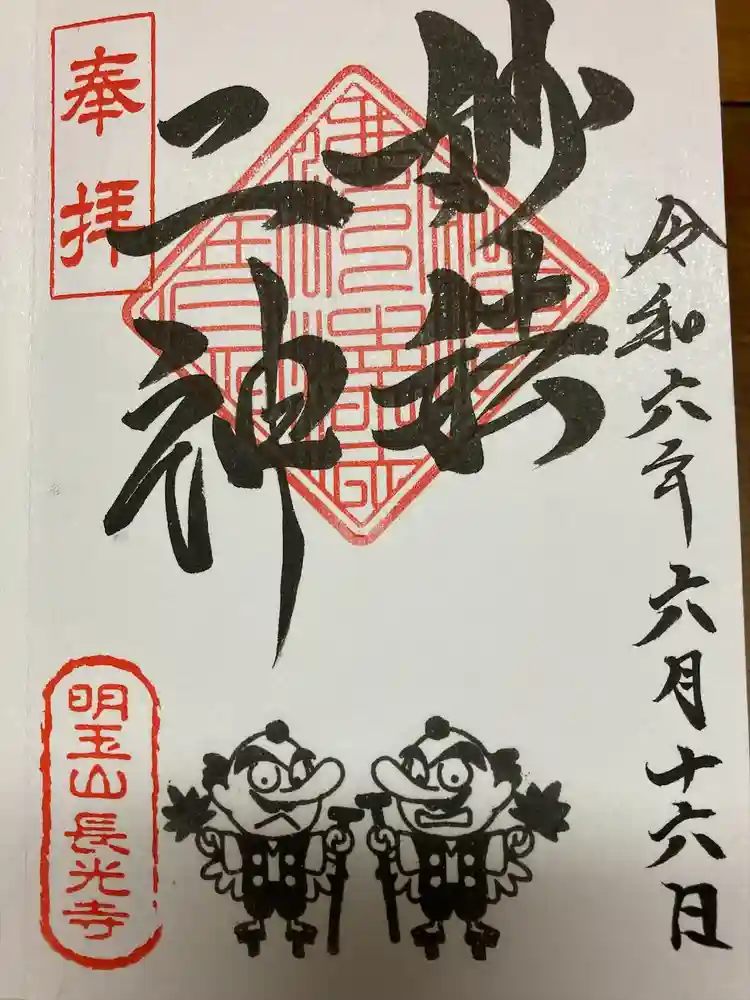 令和六年六月十六日
妙
二神
奉拝
明玉山長光寺